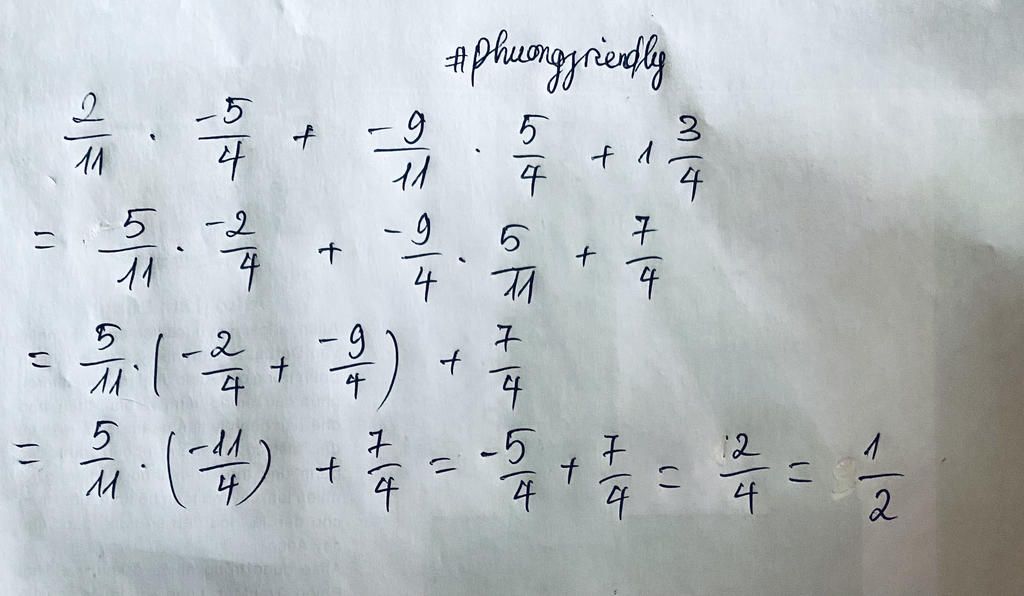 #phuongfriendly
2/11 . -5/4 + -9/11 . 5/4 + 1 3/4
= 5/11 . -2/4 + -9/4 . 5/11 + 7/4
= 5/11 . (-2/4 + -9/4) + 7/4
= 5/11 . (-11/4) + 7/4 = -5/4 + 7/4 = 2/4 = 1/2